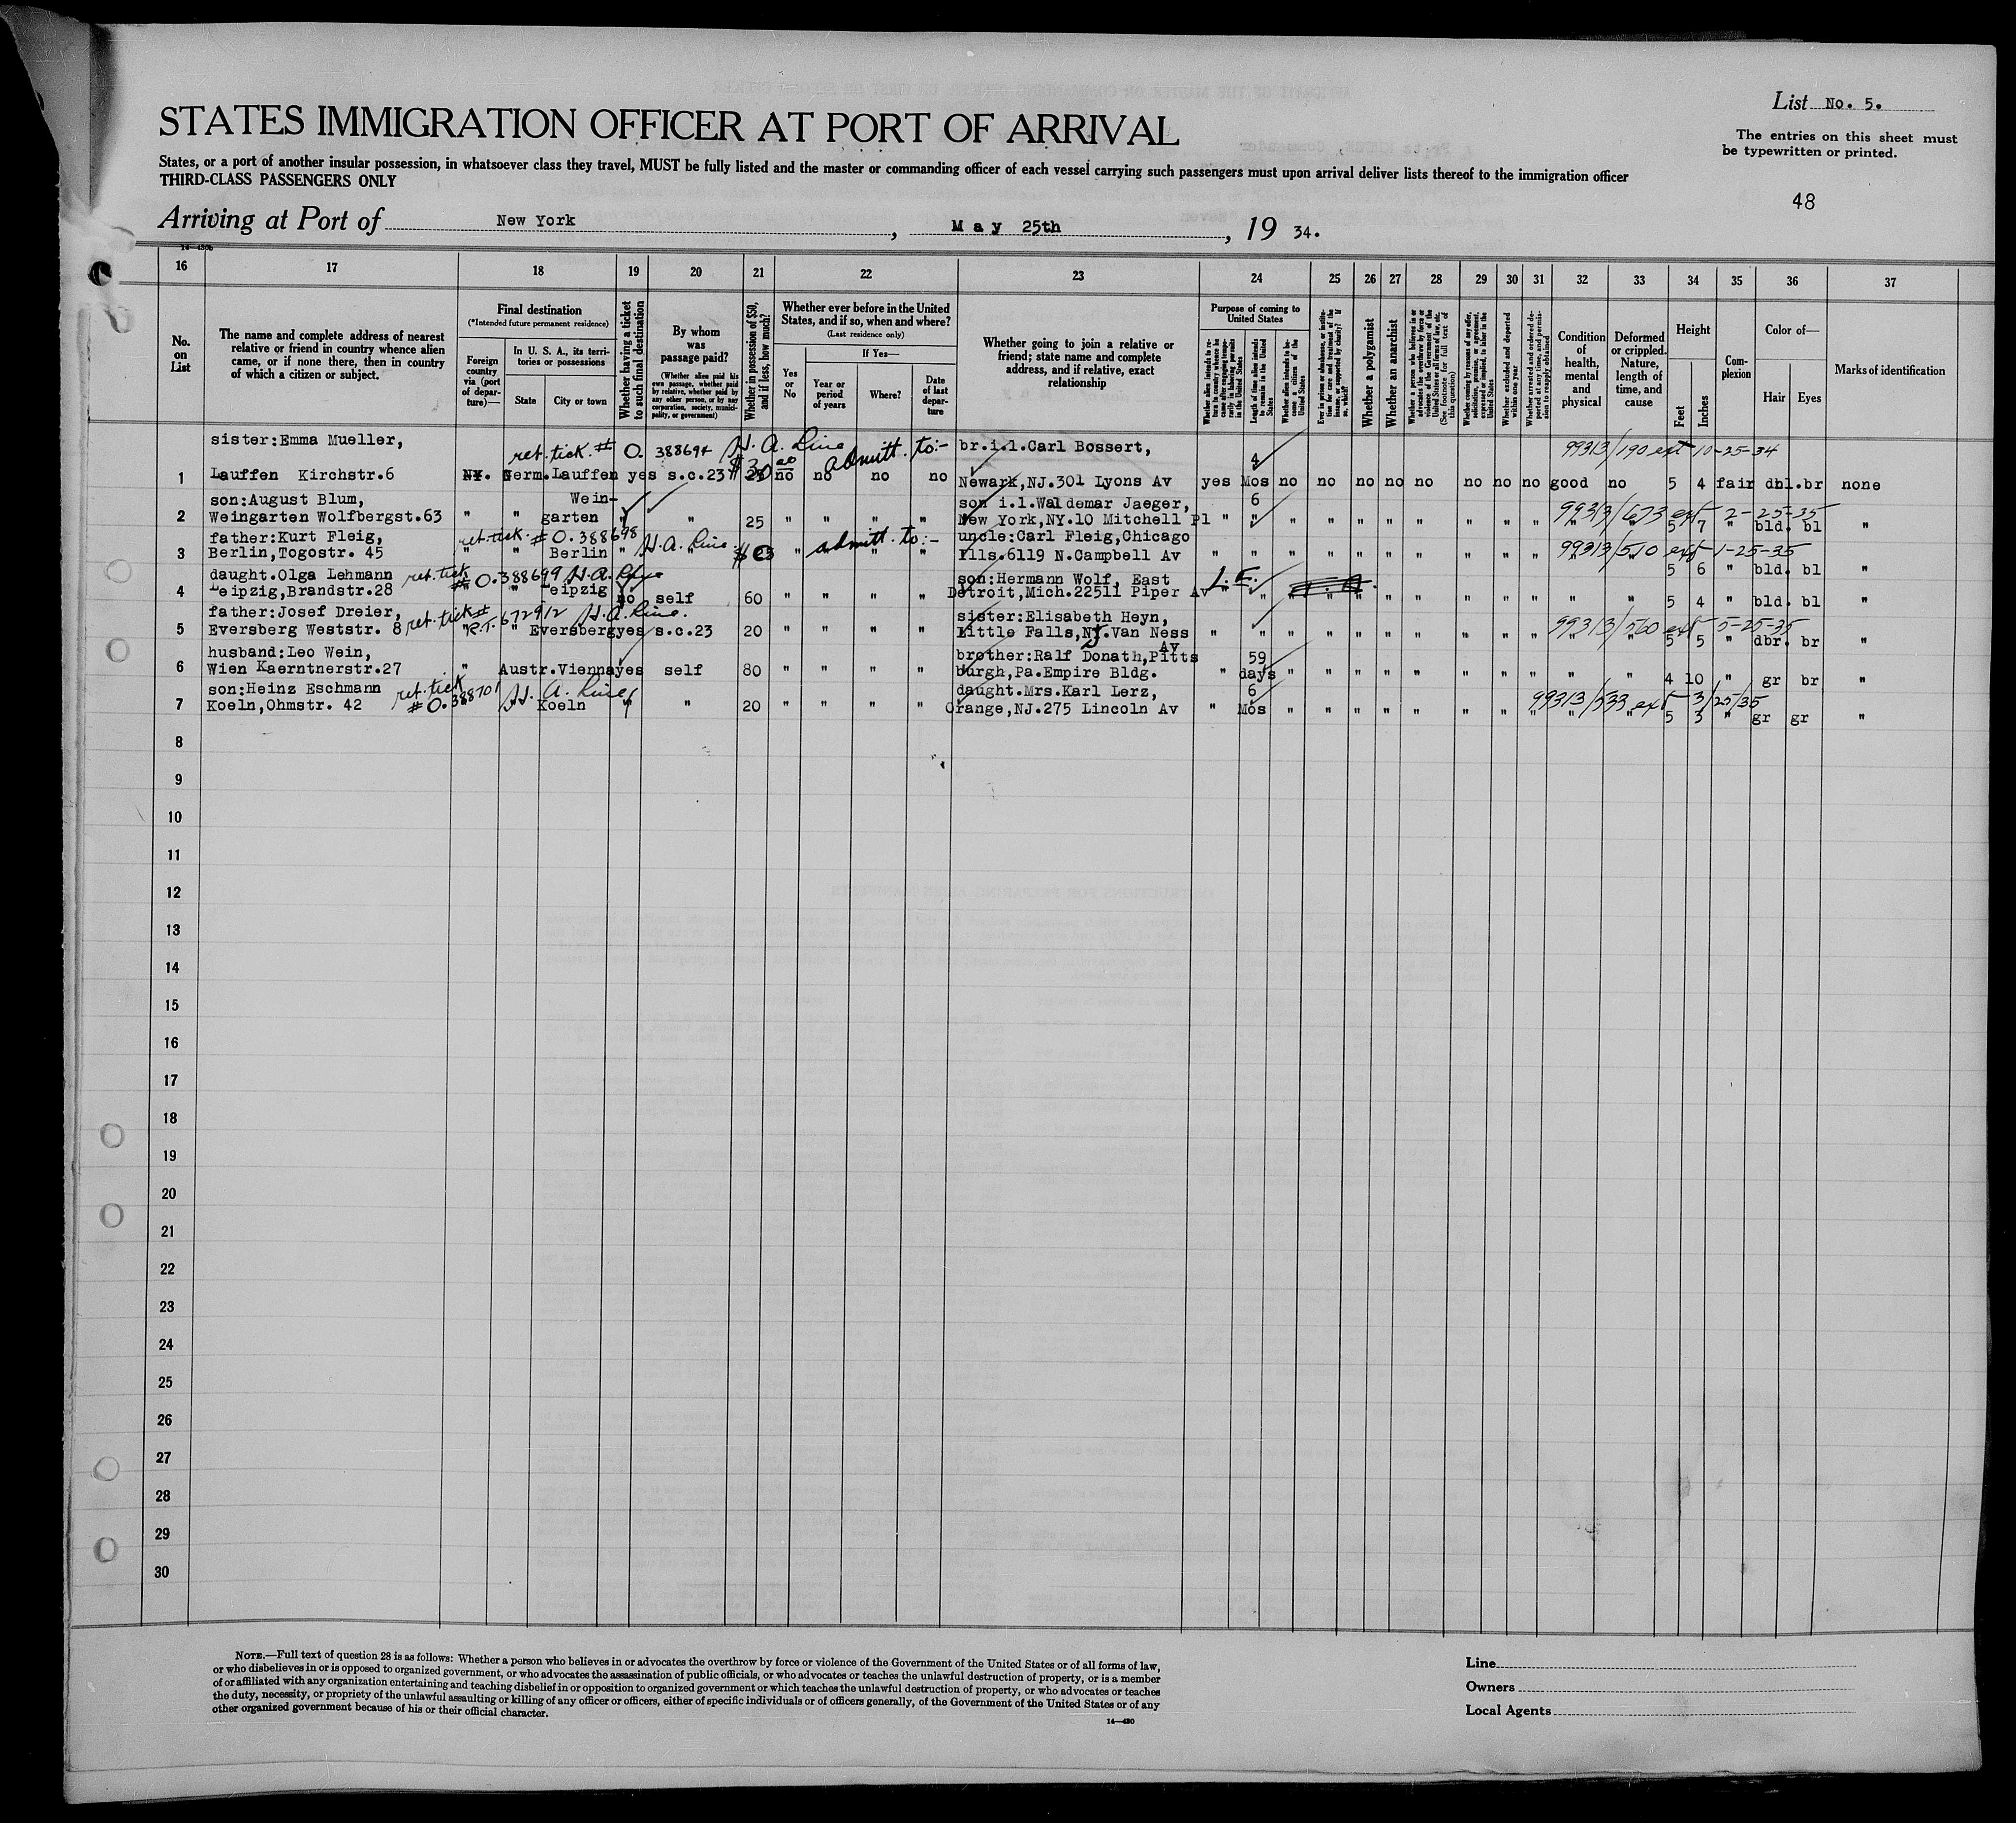 List No. 5.
STATES IMMIGRATION OFFICER AT PORT OF ARRIVAL
The entries on this sheet must
be typewritten or printed.
States, or a port of another insular possession, in whatsoever class they travel, MUST be fully listed and the master or commanding officer of each vessel carrying such passengers must upon arrival deliver lists thereof to the immigration officer
THIRD-CLASS PASSENGERS ONLY
48
Arriving at Port of New York, May 25th, 19 34.
14-430b
16 17 18 19 20 21 22 23 24 25 26 27 28 29 30 31 32 33 34 35 36 37
No. on List
The name and complete address of nearest relative or friend in country whence alien came, or if none there, then in country of which a citizen or subject.
Final destination
(*Intended future permanent residence)
Foreign country via (port of departure)—
In U. S. A., its territories or possessions
State
City or town
Whether having a ticket to such final destination
By whom was passage paid?
(Whether alien paid his own passage, whether paid by relative, whether paid by any other person, or by any corporation, society, municipality, or government)
Whether in possession of $50, and if less, how much?
Whether ever before in the United States, and if so, when and where?
(Last residence only)
Yes or No
If Yes—
Year or period of years
Where?
Date of last departure
Whether going to join a relative or friend; state name and complete address, and if relative, exact relationship
Purpose of coming to United States
Length of time alien intends to remain in the United States
Whether alien intends to become a citizen of the United States
Whether a polygamist
Whether an anarchist
Whether excluded and deported within one year
Condition of health, mental and physical
Deformed or crippled. Nature, length of time, and cause
Height
Feet
Inches
Complexion
Color of—
Hair
Eyes
Marks of identification
sister:Emma Mueller, ret. tick. # O. 388694 H. A. Line admitt. to:- br.i.l.Carl Bossert, 4 99313/190 ext 10-25-34
1 Lauffen Kirchstr.6 NY. Germ.Lauffen yes s.c.23 $30 no no no no Newark,NJ.301 Lyons Av yes Mos no no no no no no no no good no 5 4 fair dbl.br none
son:August Blum, Wein- son i.l.Waldemar Jaeger, 6 99313/673 ext 2-25-35
2 Weingarten Wolfbergst.63 " " garten " " 25 " " " " New York,NY.10 Mitchell Pl " " " " " " " " " " " " 5 7 " bld. bl "
father:Kurt Fleig, ret. tick. # O. 388698 H. A. Line. admitt. to:- uncle:Carl Fleig,Chicago 99313/510 ext 1-25-35
3 Berlin,Togostr. 45 " " Berlin " " " " " " Ills.6119 N.Campbell Av " " " " " " " " " " 5 6 " bld. bl "
daught.Olga Lehmann ret. tick # O. 388699 H. A. Line son:Hermann Wolf, East L. E.
4 Leipzig,Brandstr.28 " Leipzig no self 60 " " " " Detroit,Mich.22511 Piper Av " " " " " " " " " " " 5 4 " bld. bl "
father:Josef Dreier, ret. tick # R.T. 672912 H. A. Line. sister:Elisabeth Heyn, 99313/560 ext 5-25-35
5 Eversberg Weststr. 8 " " Eversberg yes s.c.23 20 " " " " Little Falls,NJ.Van Ness Av " " " " " " " " " " 5 5 " dbr. br "
husband:Leo Wein, brother:Ralf Donath,Pitts 59
6 Wien Kaerntnerstr.27 " Austr.Vienna yes self 80 " " " " burgh,Pa.Empire Bldg. " days " " " " " " " " " " 4 10 " gr br "
son:Heinz Eschmann ret. tick # O. 388701 H. A. Line daught.Mrs.Karl Lerz, 6 99313/533 ext 3/25/35
7 Koeln,Ohmstr. 42 Koeln " " 20 " " " " Orange,NJ.275 Lincoln Av " Mos " " " " " " " " " " 5 3 " gr gr "
8
9
10
11
12
13
14
15
16
17
18
19
20
21
22
23
24
25
26
27
28
29
30
NOTE.—Full text of question 28 is as follows: Whether a person who believes in or advocates the overthrow by force or violence of the Government of the United States or of all forms of law,
or who disbelieves in or is opposed to organized government, or who advocates the assassination of public officials, or who advocates or teaches the unlawful destruction of property, or is a member
of or affiliated with any organization entertaining and teaching disbelief in or opposition to organized government or which teaches the unlawful destruction of property, or who advocates or teaches
the duty, necessity, or propriety of the unlawful assaulting or killing of any officer or officers, either of specific individuals or of officers generally, of the Government of the United States or of any
other organized government because of his or their official character.
14-430
Line
Owners
Local Agents